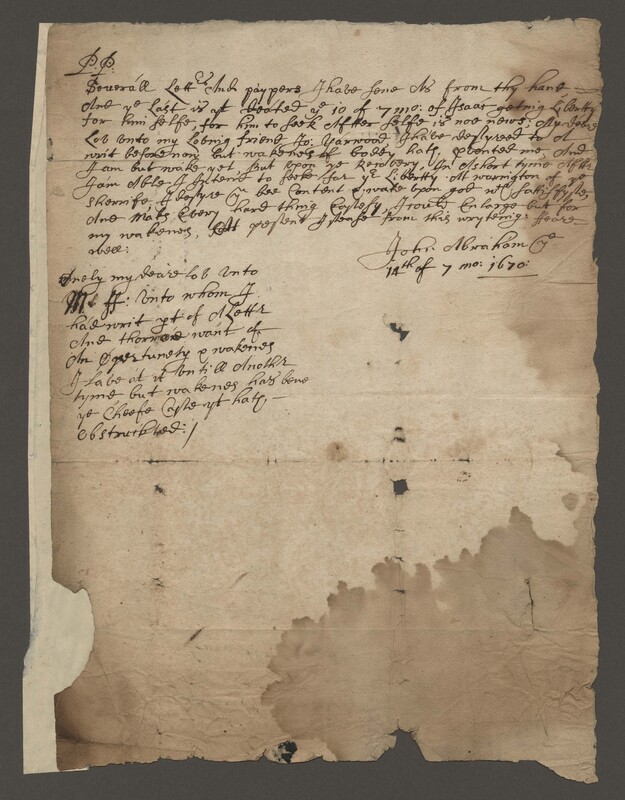 P.P.
Severall Letters And pappers I have sene As from thy hand
And ye Last is at dated ye 10 of 7 mo: of Isaac geting Liberty
for him selfe, for him to seek After selfe is noe news; My deare
Lov unto my Loving friend Jo: Yarwood I have desyered to A
writ before now but wakenes of boddy hath prvented me, And
I am but wake yet But upon ye Recovery, In A short tyme After
I am Able I intend to seeke for yr Liberty At warington of ye
sherriffe I desyre you bee Content & wate upon god wch satisfyes
And Maks Every hard thing Easey, I could Enlarge but for
my wakenes, Att present I sease from this wryteing: fare
well:
John: Abraham
14th of 7 mo: 1670:
Onely my deare lov unto
M: ff: unto whom I
had writ pt of A Letter
And thorrow want of
An Oppertunety & wakenes
I Lave at it untill Another
tyme but wakenes has bene
ye Cheefe yt hath
Obstruckted:/